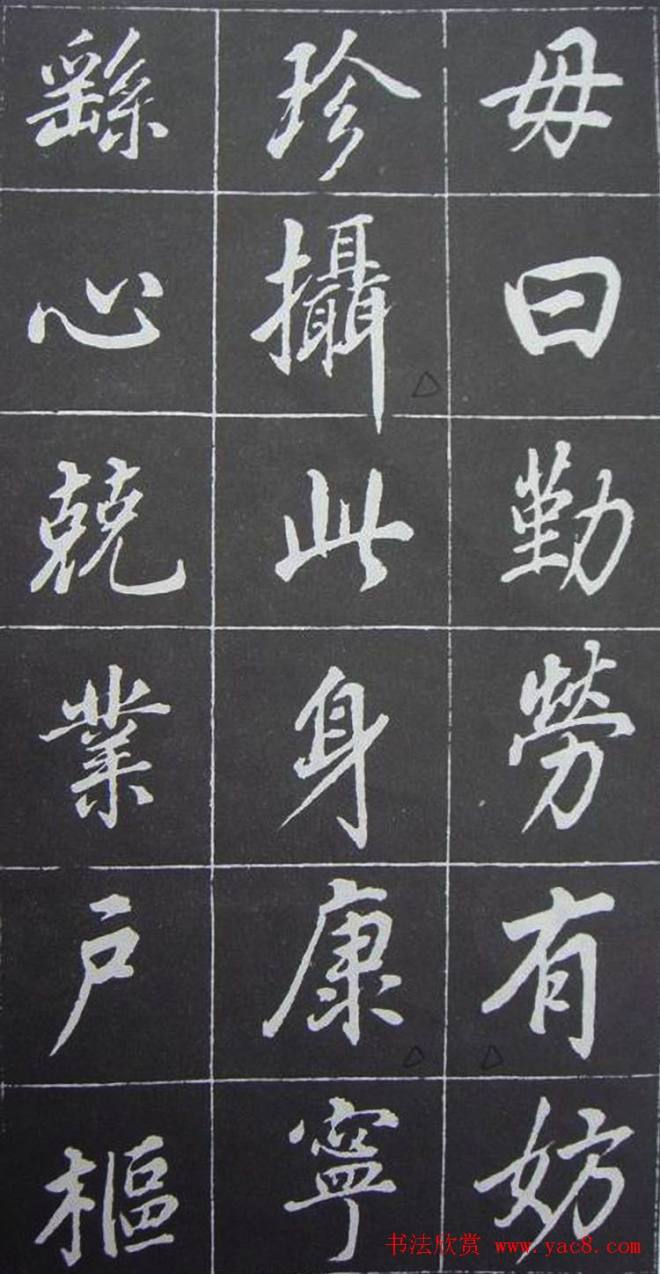 毋曰勤勞有妨
珍攝此身康寧
繇心兢業戶樞
书法欣赏 www.yac8.com